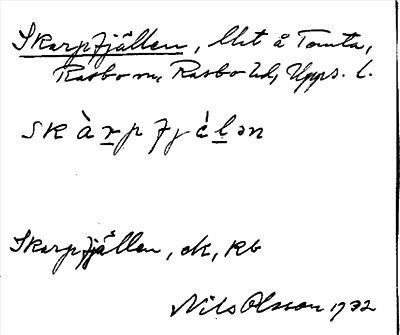 Skarpfjällen, Uet å Tomta,
Rasbo sn, Rasbo hd, Upps. l.
skàrpfjélən
Skarpfjällen, ek, kb
Nils Olsson 1932